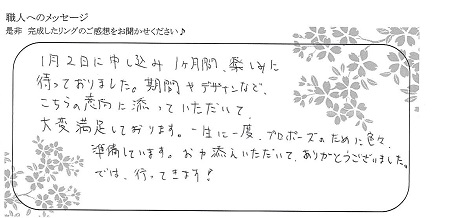 職人へのメッセージ
是非 完成したリングのご感想をお聞かせください♪
1月2日に申し込み 1ヶ月間、楽しみに
待っておりました。期間やデザインなど、
こちらの意向に添っていただいて、
大変満足しております。一生に一度、プロポーズのために色々
準備しています。お力添えいただいて、ありがとうございました。
では、行ってきます!